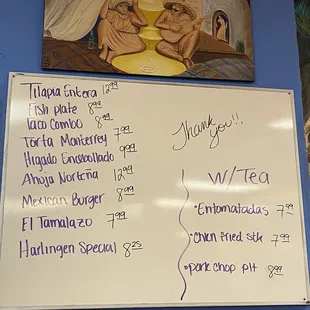 Tilapia Entera 12.99
Fish plate 8.99
Taco Combo 8.99
Torta Monterrey 7.99
Higado Encebollado 9.99
Ahuja Norteña 12.99
Mexican Burger 8.99
El Tamalazo 7.99
Harlingen Special 8.25
Thank you!!
W/Tea
• Entomatadas 7.99
• Chkn Fried Stk 7.99
• pork chop plt 8.99